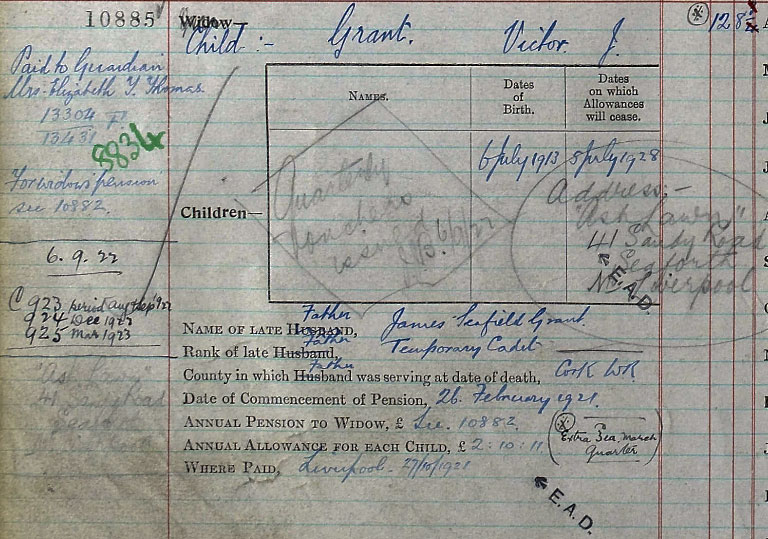 10885
Widow —
Child :- Grant. Victor. J.
128
Paid to Guardian
Mrs. Elizabeth Y. Thomas
13304
13431
8834
For widow's pension
see 10882.
6. 9. 22
C 923 period Aug Sep '22
924 Dec 1922
925 Mar 1923
"Ash Lawn"
41 Sandy Road
Seaforth
NAMES.
Dates
of
Birth.
Dates
on which
Allowances
will cease.
6 July 1913 5 July 1928
Children—
Quarterly
Vouchers
issued
Address:-
"Ash Lawn"
41 Sandy Road
Seaforth
Nr Liverpool
E.A.D.
Father
NAME OF LATE HUSBAND, James Seafield Grant.
Father
Rank of late Husband, Temporary Cadet
Father
County in which Husband was serving at date of death, Cork WR.
Date of Commencement of Pension, 26. February 1921.
ANNUAL PENSION TO WIDOW, £ See. 10882.
ANNUAL ALLOWANCE FOR EACH CHILD, £ 2:10:11
Extra March
Quarter
WHERE PAID, Liverpool - 27/10/1921
E.A.D.